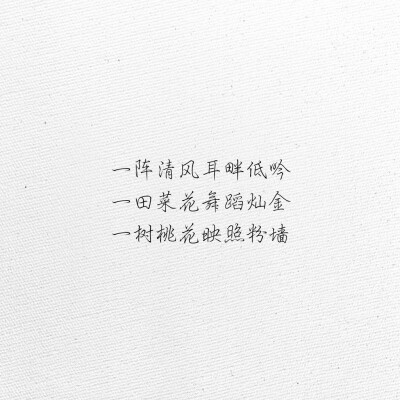 一阵清风耳畔低吟
一田菜花舞蹈灿金
一树桃花映照粉墙